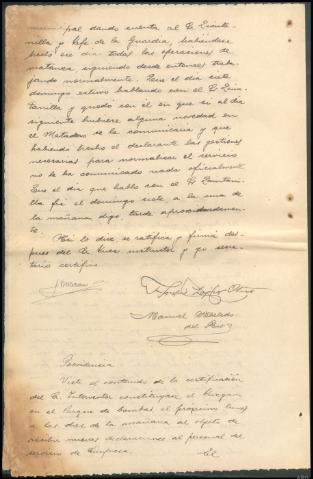 municipal dando cuenta al Sr
y Jefe de la Guardia, habiéndose
hecho ese dia todas las operaciones de
matanza siguiendo desde entonces traba-
jando normalmente. Que el dia siete
domingo estuvo hablando con el Sr
y quedó con él en que si al dia
siguiente hubiese alguna novedad en
el Matadero se la comunicaria y que
habiendo hecho el declarante las gestiones
necesarias para normalizar el servicio
no le ha comunicado nada oficialmente
Que el dia que habló con el Sr
fué el domingo siete a la una de
la mañana digo, tarde aproximadamen-
te.
Asi lo dice se ratifica y firma des-
pues del Sr. Juez instructor y yo secre-
tario certifico.
Manuel
del
Providencia
Visto el contenido de la certificación
del Sr. Interventor constitúyase el Juzgado
en el Parque de bombas el próximo lunes
a las diez de la mañana al objeto de
recibir nuevas declaraciones al personal del
servicio de limpieza.
El